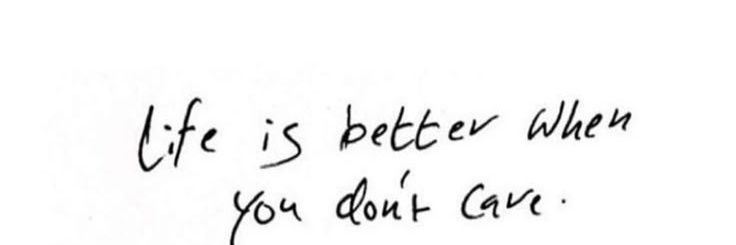 Life is better when
you don't care.